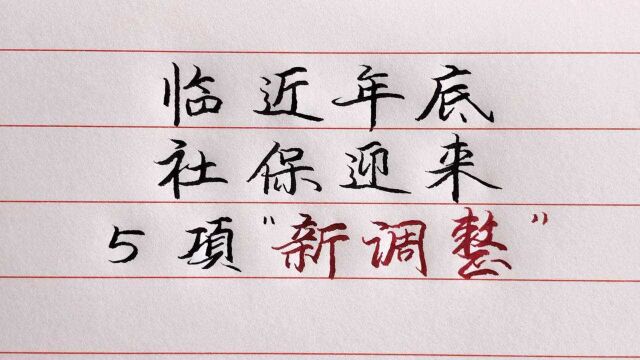 临近年底
社保迎来
5項"新调整"